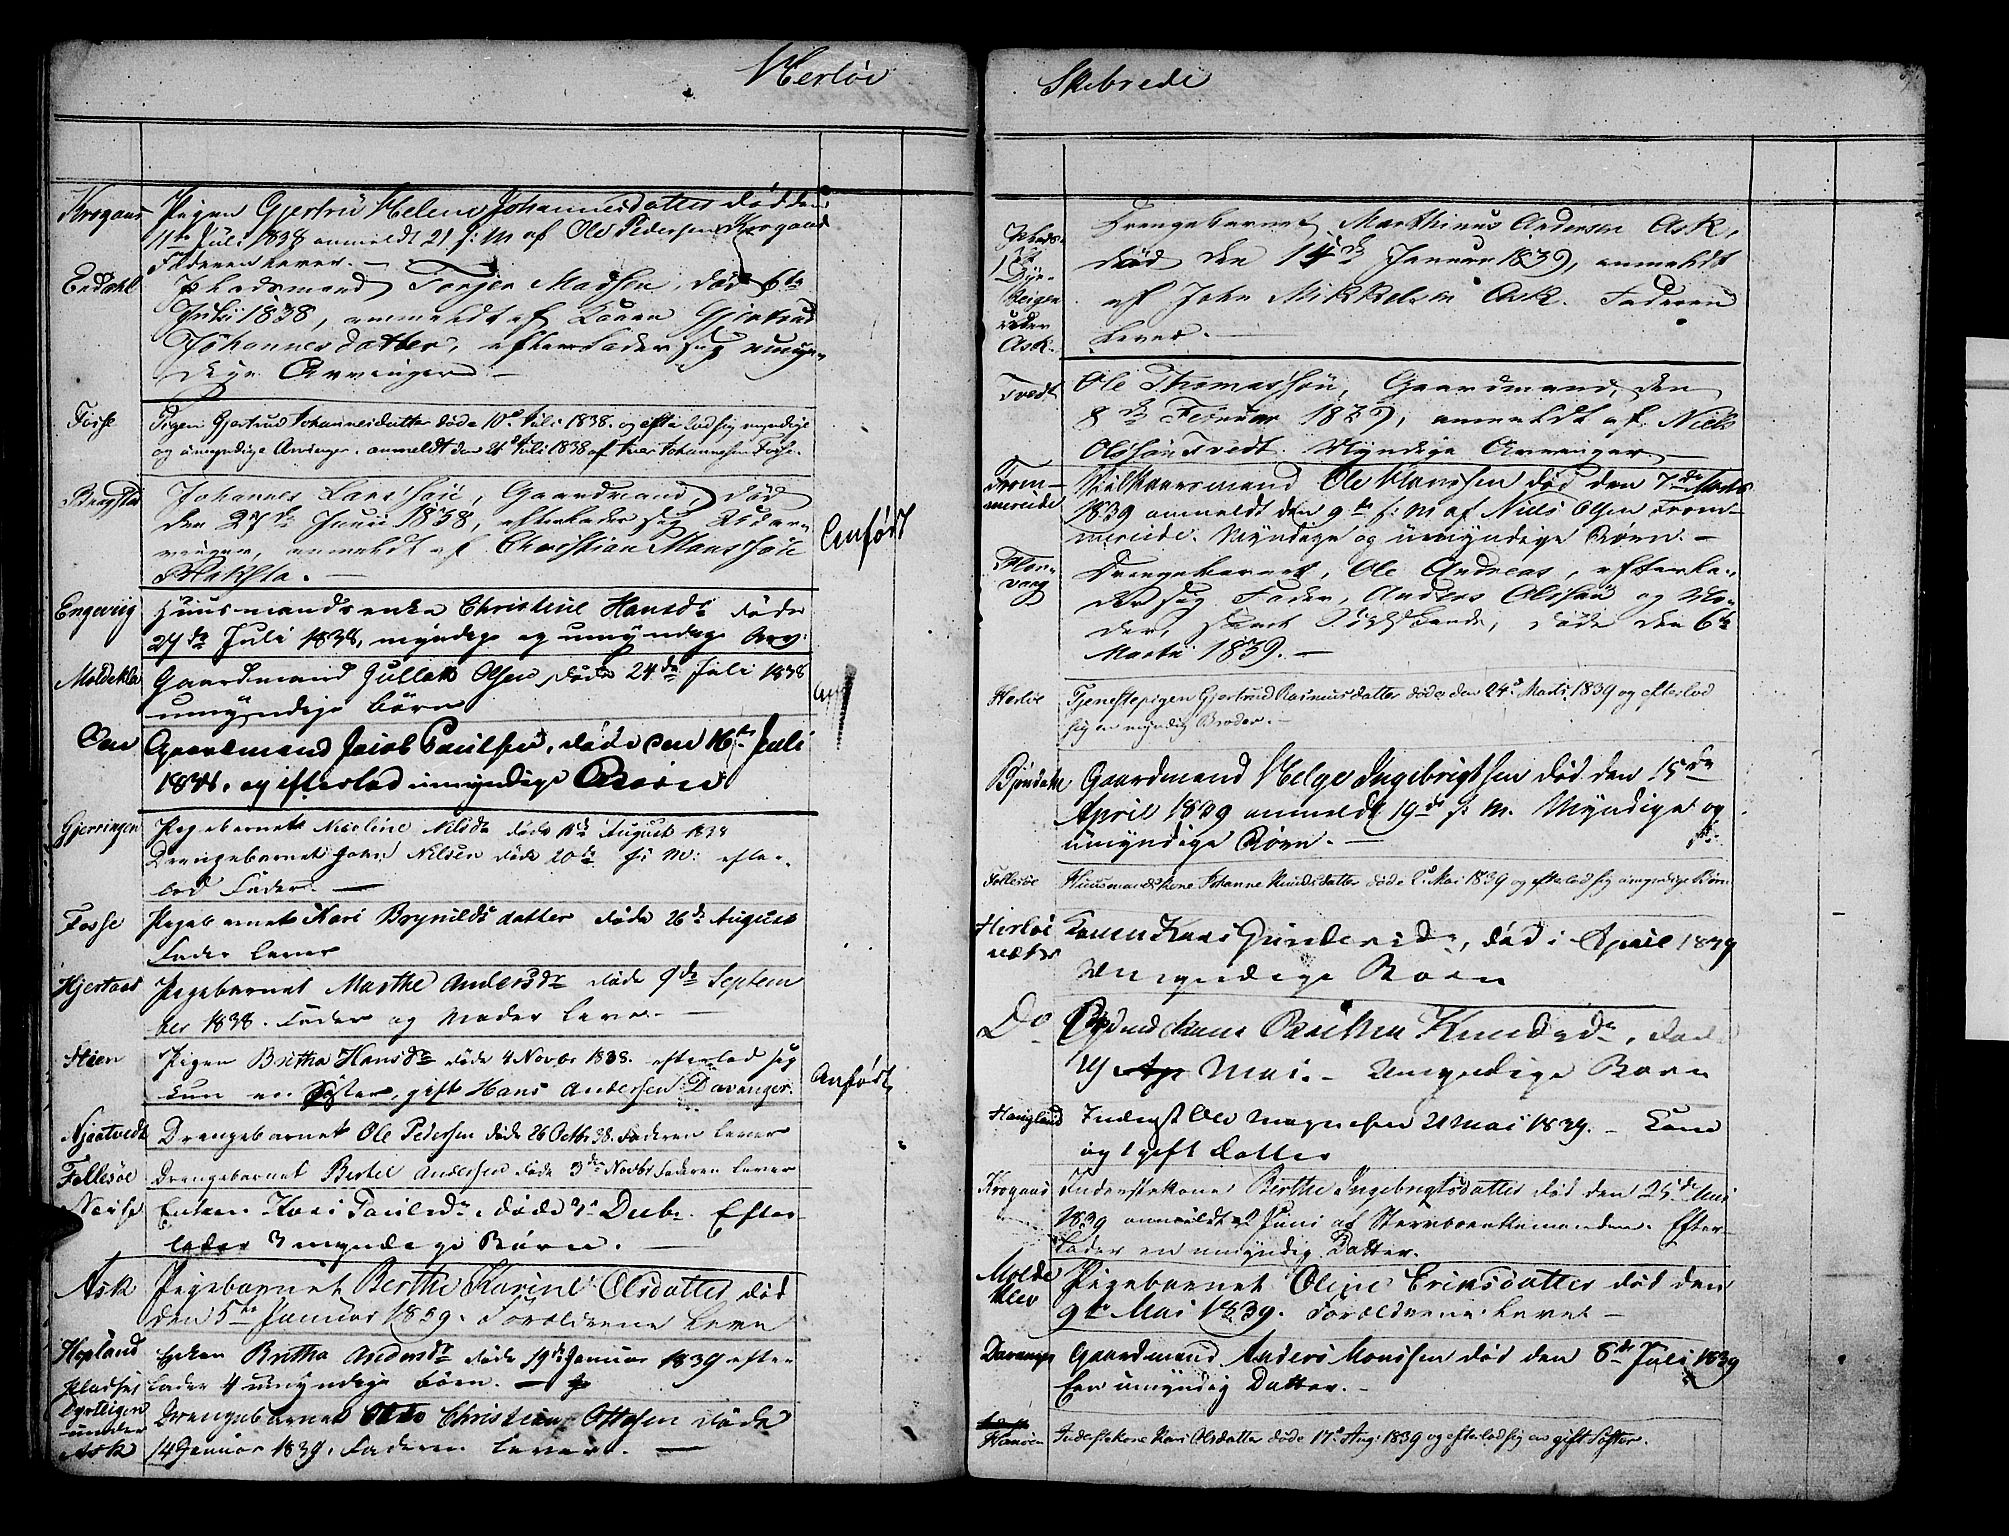 Herlöe
Krogaas Pigen Gjertrü Helene Johannesdatter död den
11te Juli 1838 anmeldt 21 s: M af Ole Pedersen Krogaas
Faderen lever. —
Endahl Pladsmand Torjer Madsen, död 6te
Juli 1838, anmeldt af Konen Gjertrud
Johannesdatter, efterlader sig umyn-
dige Arvinger —
Fosse Pigen Gjertrud Johannesdatter döde 10de Juli 1838. og efterlod sig myndige
og umyndige Arvinger. anmeldt den 21de Juli 1838 af Iver Johannesen Fosse.
Johannes Larssön, Gaardmand, död
den 27de Juni 1838, efterlader sig
anmeldt af Christian Monssön
Anfödt
Engevig Huusmandsenke Christine Hansdr döde
27de Juli 1838, myndige og umyndige Arv:
Moldeklev Gaardmand Gullak Olsen döde 24de Juli 1838
umyndige börn
Gaardmand Jacob Paulsen, döde den 16te Juli
1838. og efterlod umyndige Börn
Gjerringen Pigebarnet Nicoline Nilsdr döde 11de August 1838
Drengebarnet Johs Nilsen döde 20de s: M: efter-
lod Fader. —
Fosse Pigebarnet Kari Brynildsdatter döde 26de August
Fader lever
Hjertaas Pigebarnet Marthe Andersdr döde 9de Septem
ber 1838. Fader og Moder lever. —
Steen Pigen Britha Hansdr döde 4 Novbr 1838. efterlod sig
kun en Söster, gift Hans Andersen Davanger.
Anfödt
Njeetvedt Drengebarnet Ole Pedersen döde 26 Octbr 38. Faderen lever
Follesöe Drengebarnet Bertel Andersen döde 3de Novbr Faderen lever
Enken Kari Paulsdr. döde 3de Decbr. Efter-
lader 3 myndige Börn. —
Ask Pigebarnet Berthe Karine Olsdatter död
den 5te Januar 1839. Forældrene leve
Hopland Enken Britha Andersdr döde 19de Januar 1839 efter-
lader 4 umyndige börn. —
Pladset
Dyrteigen
under
Ask
Drengebarnet Otto Christian Ottesen döde
14 Januar 1839. Faderen lever. —
Skibrede
Plads.
Dyr-
teigen
under
Ask.
Drengebarnet Marthinus Andersen Ask,
död den 14de Januar 1839, anmeldt
af John Mikkelsen Ask. Faderen
lever. —
Tvedt Ole Thomassön, Gaardmand, den
8de Februar 1839, anmeldt af Niels
Olssön Tvedt. Myndige Arvinger —
From-
mreide
Vilkaarsmand Ole Monssen död den 7de Marts
1839 anmeldt den 9de s: M af Niels Olsen From-
mreide. Myndige og umyndige Börn. —
Flor-
vaag
Drengebarnet, Ole Andreas, efterla-
der sig Fader, Anders Olssen og Mo-
der, döde den 6te
Marts 1839. —
Herlöe Tjenestepigen Gjertrud Rasmusdatter döde den 24de Marts 1839 og efterlod
sig en myndig Broder. —
Gaardmand Helge Ingebrigtsen död den 15de
April 1839 anmeldt 19de s: M. Myndige og
umyndige Börn. —
Follesöe Huusmandskone Johanne Knudsdatter döde 2de Mai 1839 og efterlod sig umyndige Börn
Herlöe
Konen Kari Gundersdr, död i April 1839
Umyndige Börn
Do
Knudsdr, döde
Mai. — Umyndige Börn
Haugland Inderst Ole Magnesen 21 Mai 1839. — Kone
og 1 gift datter
Krogaas Inderstekone Berthe Ingebrigtsdatter död den 25de Mai
1839 anmeldt 2 Juni af Sterrboenkemanden. Efter-
lader en umyndig Datter.
Molde
klev
Pigebarnet Oline Erinsdatter död den
9de Mai 1839. Forældrene lever —
Davanger Gaardmand Anders Monssen död den 8de Juli 1839
Een umyndig Datter. —
Hansöen Inderstekone Kari Olsdatter döde 17de Aug: 1839 og efterlod sig en gift Söster.